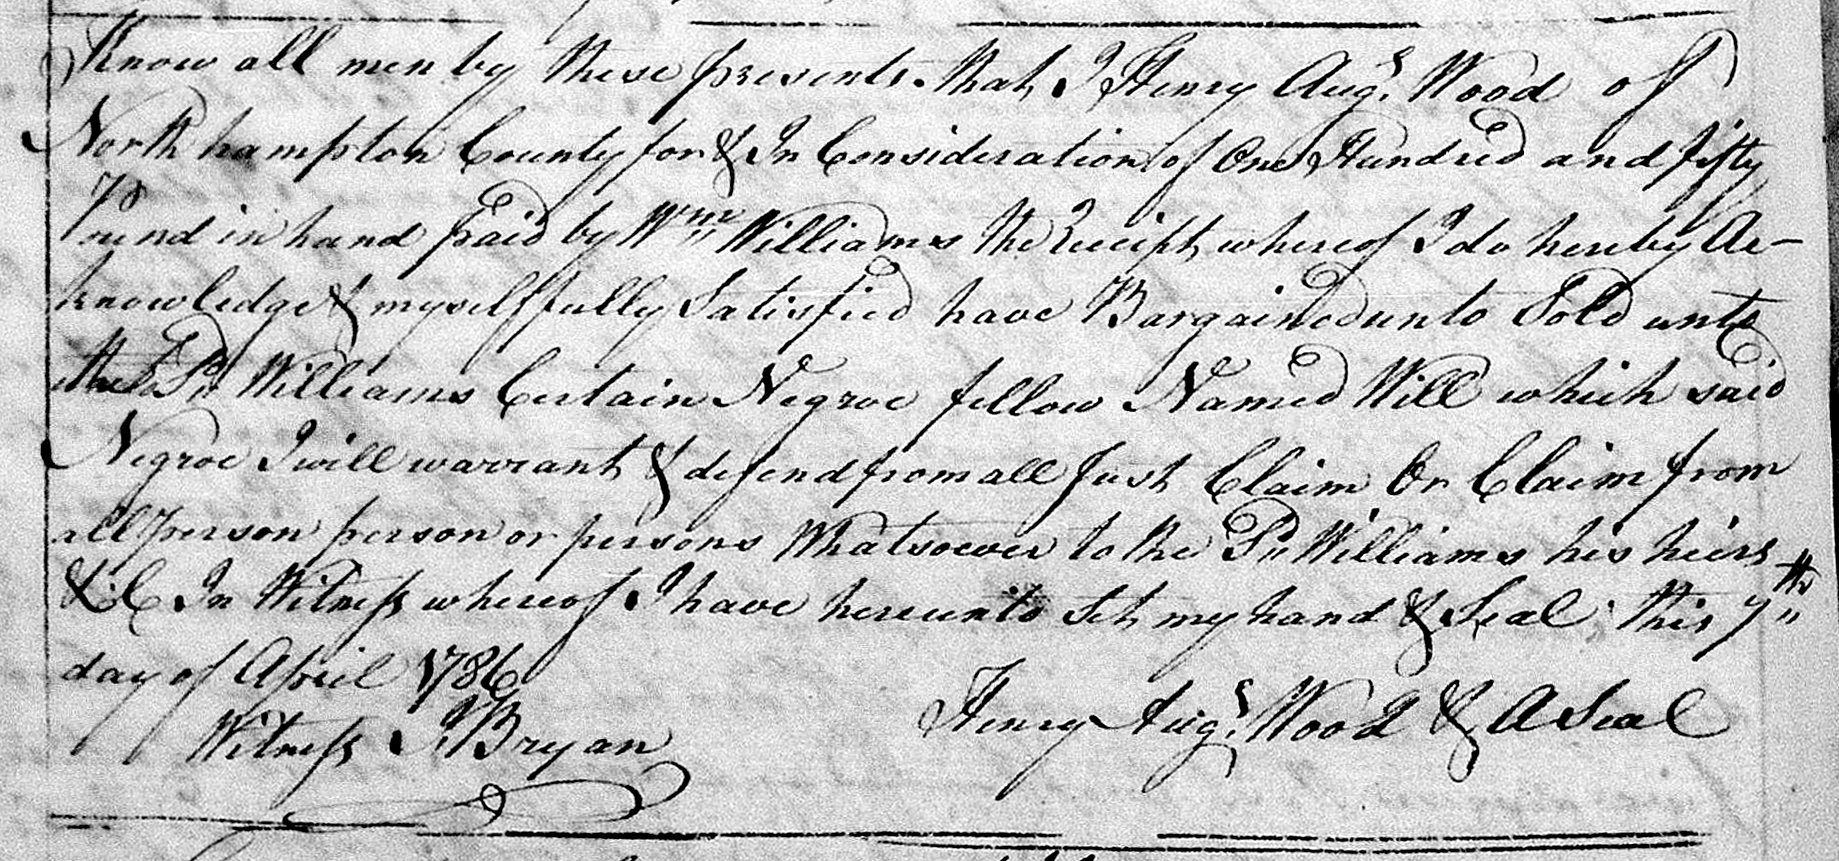 Know all men by these presents that I Henry Augs. Wood of
Northhampton County for & In Consideration of One Hundred and fifty
Pound in hand paid by Wm Williams the Receipt whereof I do hereby Ac-
knowledge & myself fully Satisfied have Bargained unto Sold unto
the Sd Williams Certain Negroe fellow Named Will which said
Negroe I will warrant & defend from all Just Claim Or Claim from
all person person or persons Whatsoever to the Sd Williams his heirs
&C In Witness whereof I have hereunto Set my hand & Seal this 7th
day of April 1786
Henry Augs. Wood & A Seal
Witness Bryan